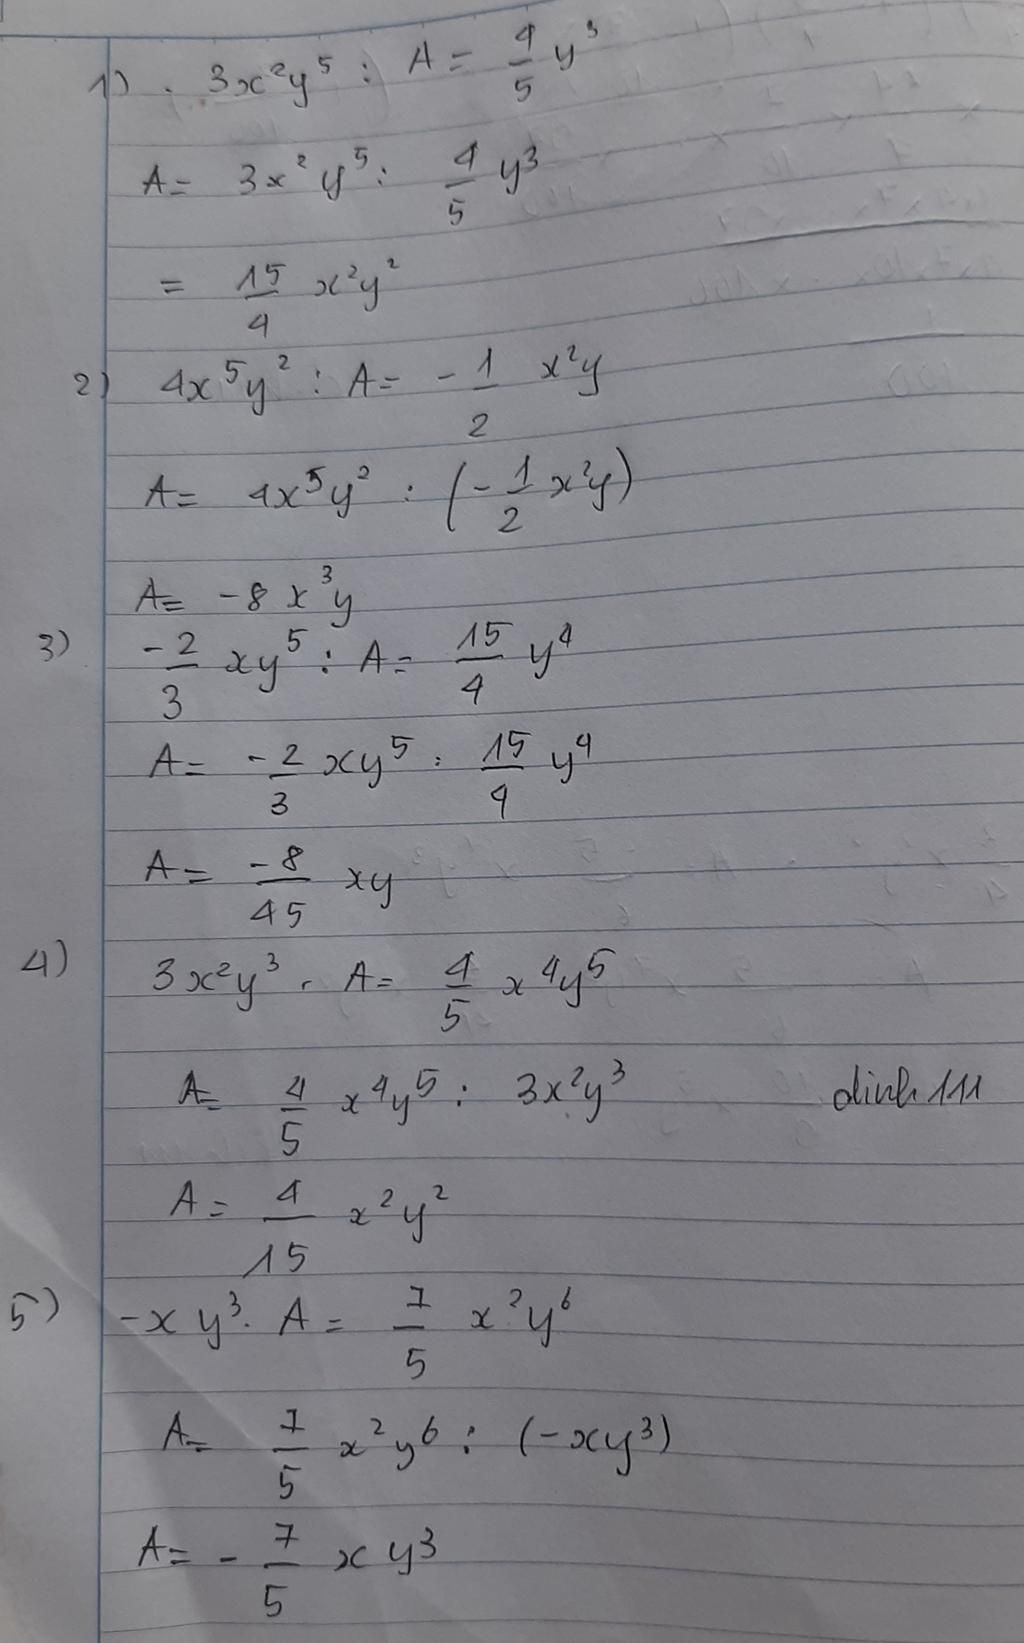 1) . 3x²y⁵ : A = 4/5 y³
A = 3x²y⁵ : 4/5 y³
= 15/4 x²y²
2) 4x⁵y² : A = - 1/2 x²y
A = 4x⁵y² : (- 1/2 x²y)
A = -8x³y
3) -2/3 xy⁵ : A = 15/4 y⁴
A = -2/3 xy⁵ : 15/4 y⁴
A = -8/45 xy
4) 3x²y³ . A = 4/5 x⁴y⁵
A = 4/5 x⁴y⁵ : 3x²y³ dinh 111
A = 4/15 x²y²
5) -xy³. A = 7/5 x²y⁶
A = 7/5 x²y⁶ : (-xy³)
A = - 7/5 xy³